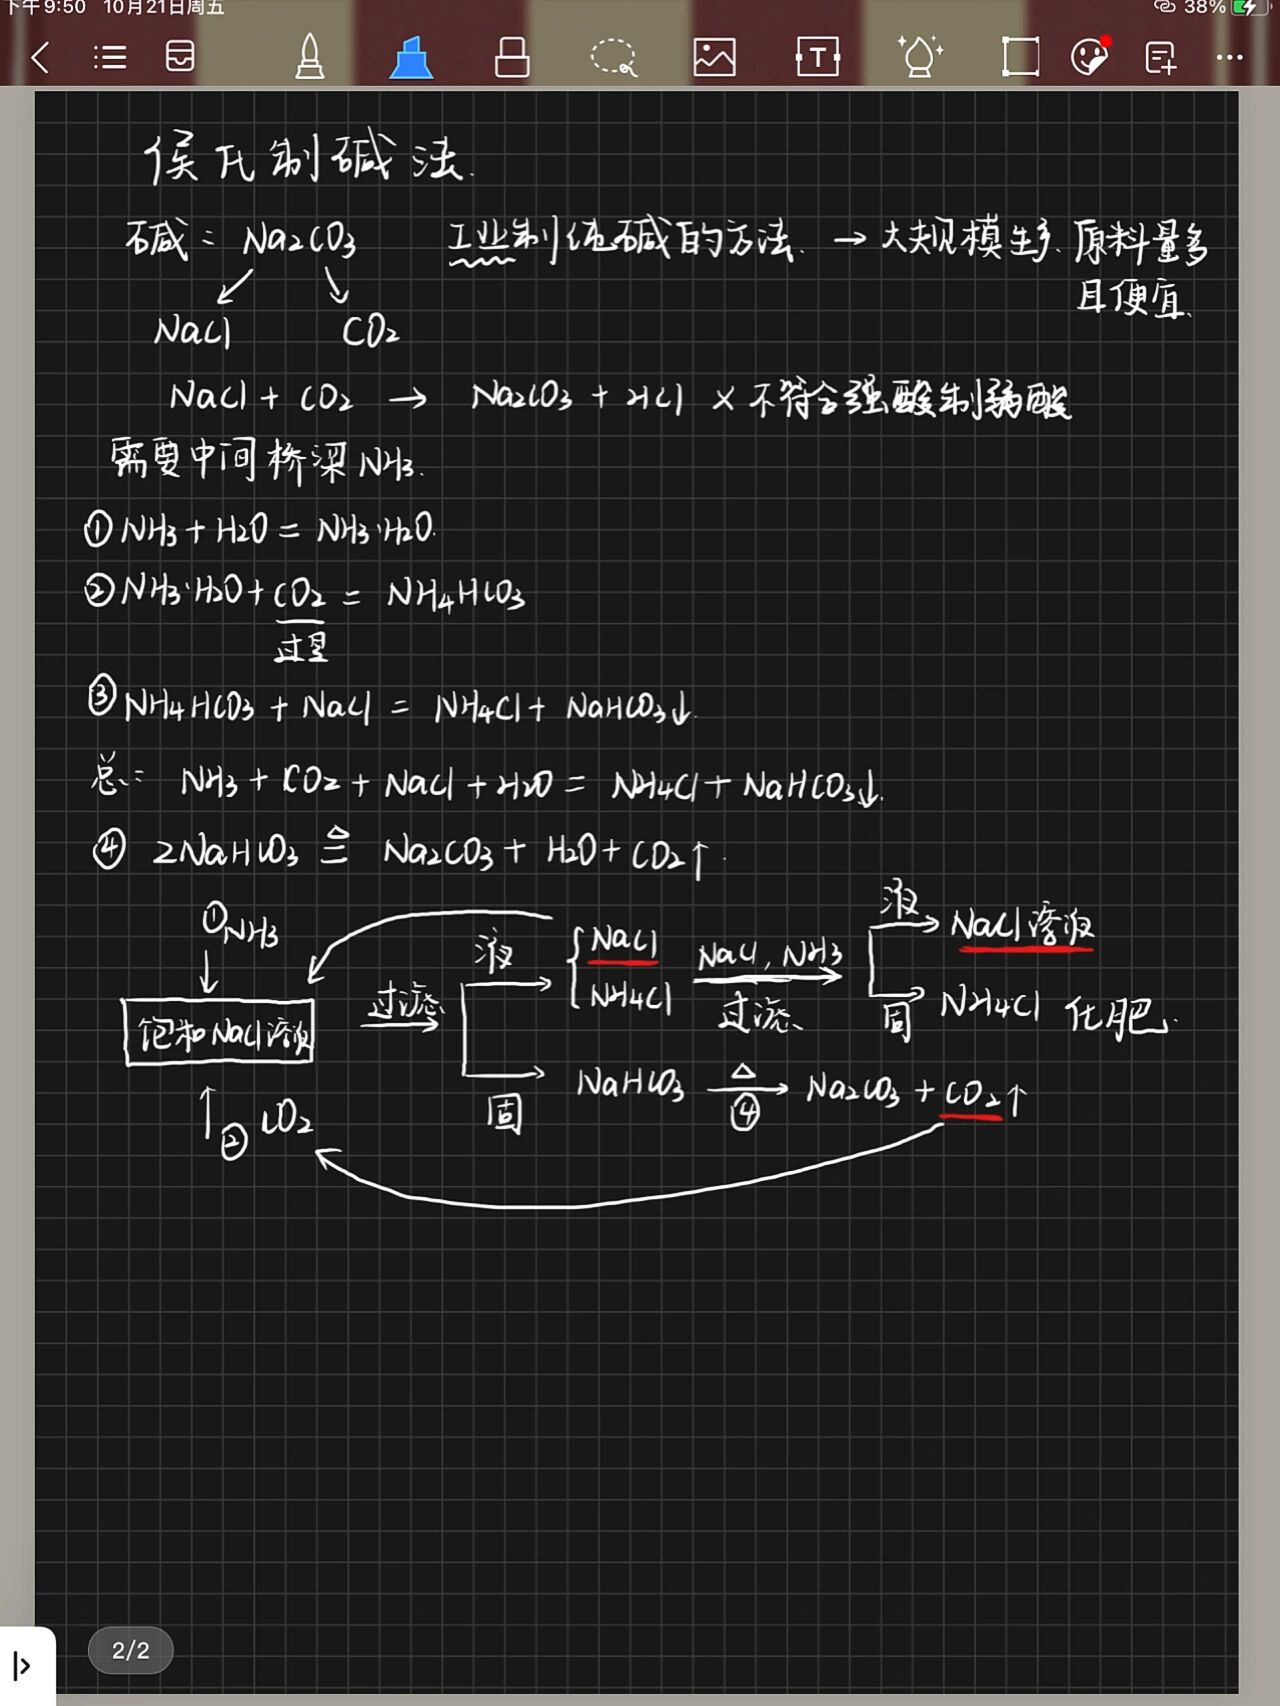 下午9:50 10月21日周五 38%
T
侯氏制碱法.
碱：Na2CO3 工业制纯碱的方法. → 大规模生产、原料量多
且便宜.
NaCl CO2
NaCl + CO2 → Na2CO3 + HCl × 不符合强酸制弱酸
需要中间桥梁NH3.
① NH3 + H2O = NH3·H2O.
② NH3·H2O + CO2 = NH4HCO3
过量
③ NH4HCO3 + NaCl = NH4Cl + NaHCO3↓.
总：NH3 + CO2 + NaCl + H2O = NH4Cl + NaHCO3↓.
④ 2NaHCO3 ≜ Na2CO3 + H2O + CO2↑.
① NH3 液 NaCl NaCl, NH3 液 NaCl溶液
饱和NaCl溶液 过滤 NH4Cl 过滤 固 NH4Cl 化肥.
固 NaHCO3 △ ④ Na2CO3 + CO2↑
② CO2
2/2